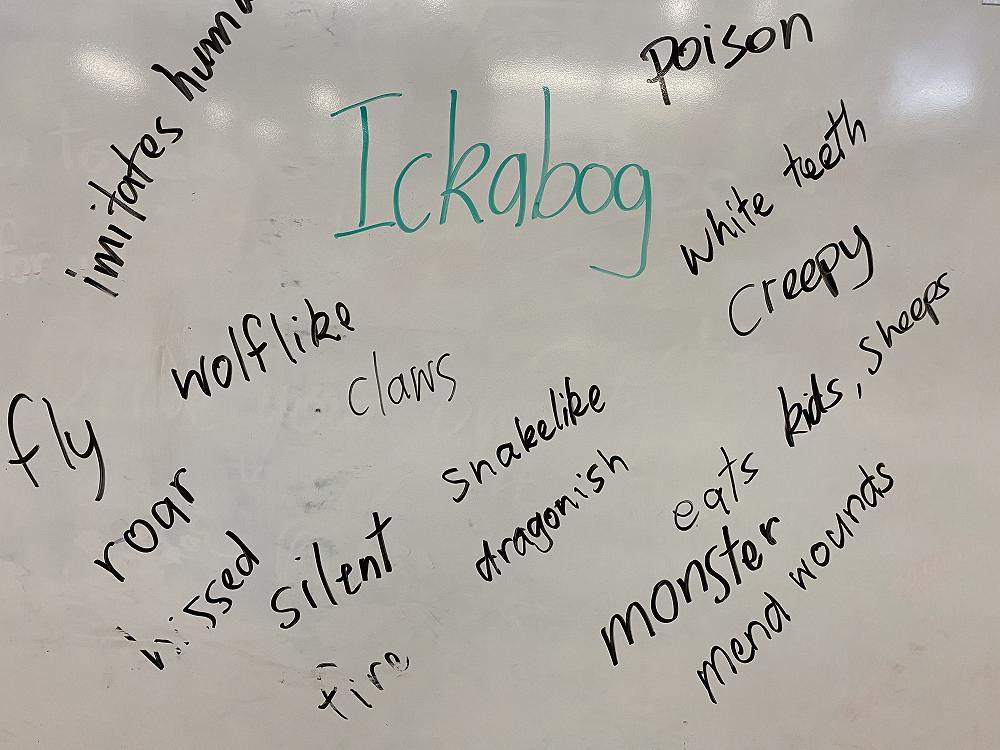 imitates
poison
Ickabog
white teeth
creepy
wolflike
claws
fly
snakelike
eats kids, sheeps
roar
dragonish
hissed
silent
monster
mend wounds
fire